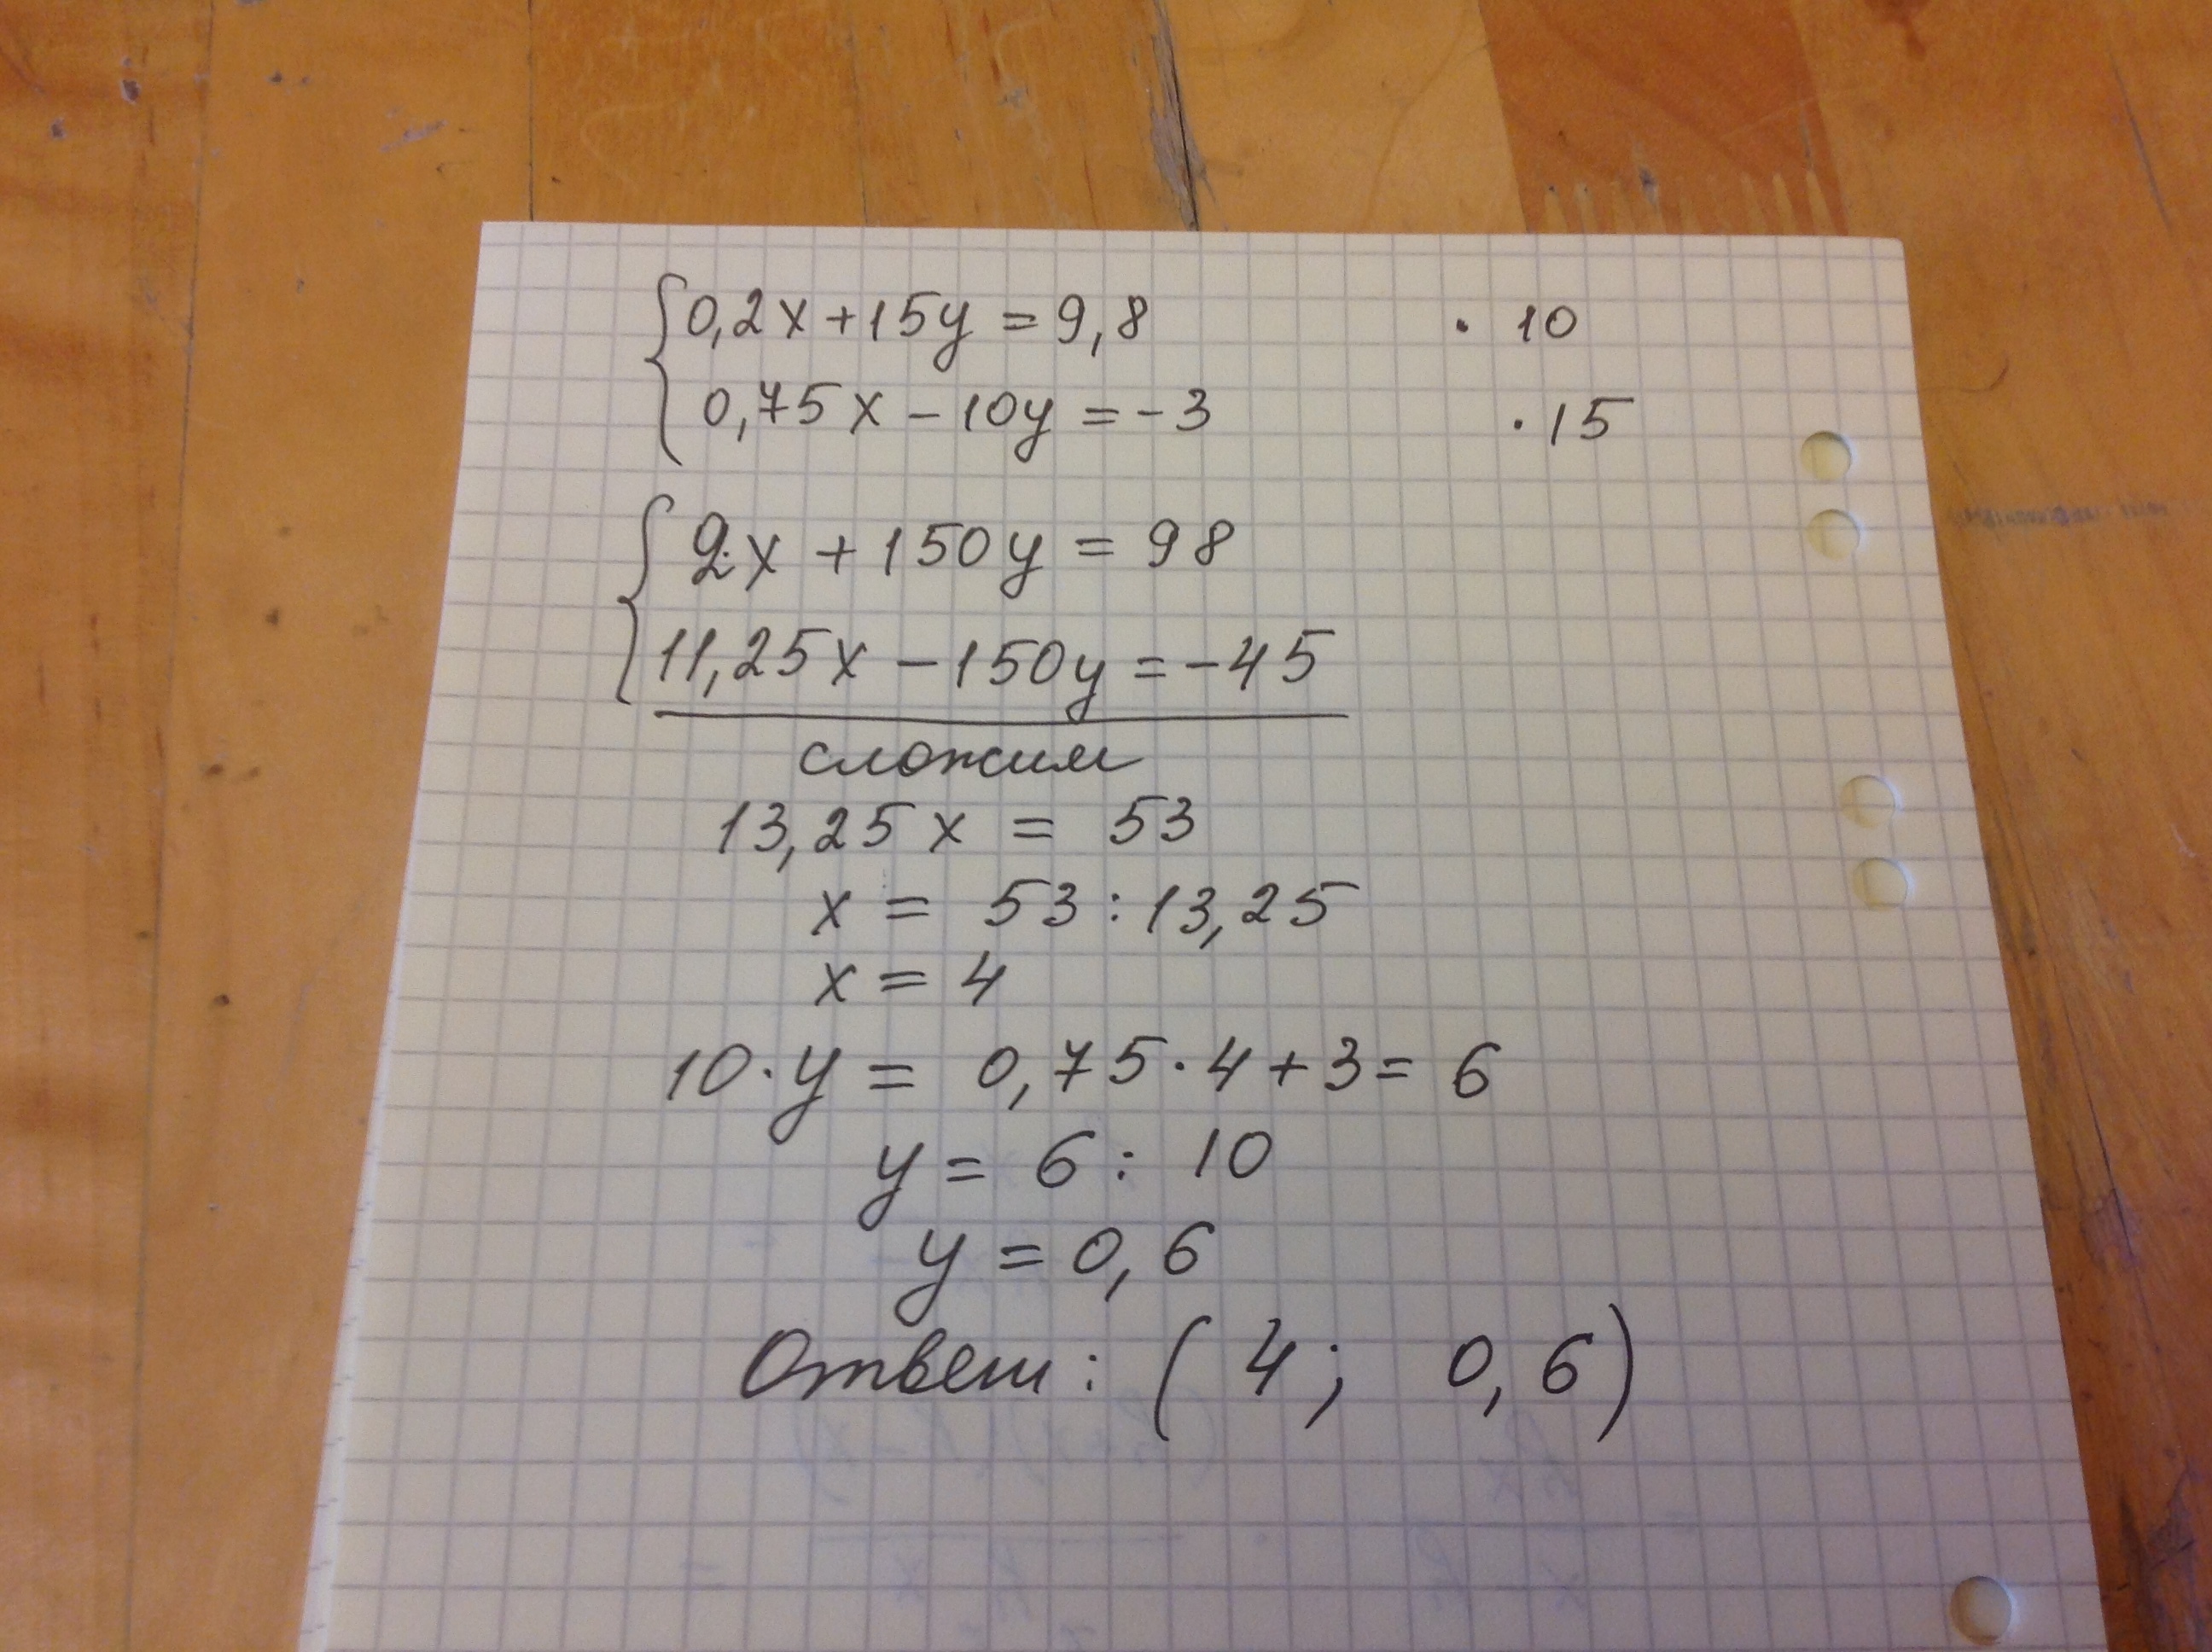 0,2x+15y=9,8 · 10
0,75x-10y=-3 · 15
2x+150y=98
11,25x-150y=-45
сложим
13,25x = 53
x = 53 : 13,25
x = 4
10·y = 0,75·4+3= 6
y = 6 : 10
y = 0,6
Ответ: (4; 0,6)